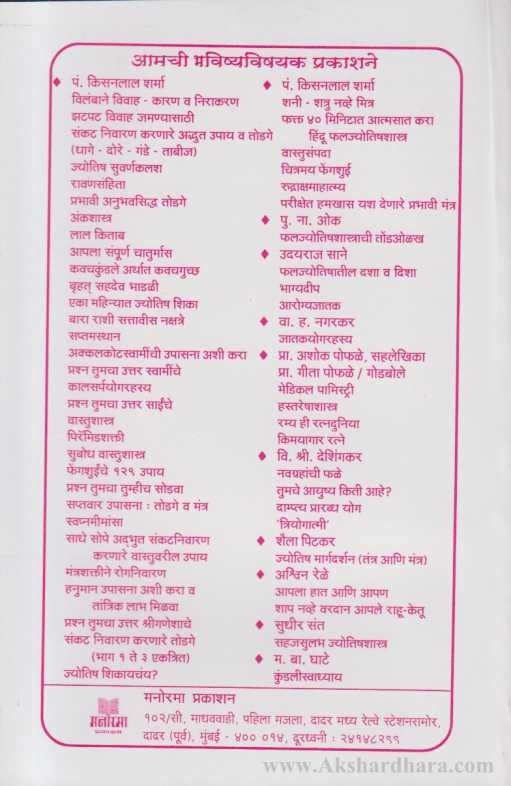 आमची भविष्यविषयक प्रकाशने
♦ पं. किसनलाल शर्मा
विलंबाने विवाह - कारण व निराकरण
झटपट विवाह जमण्यासाठी
संकट निवारण करणारे अद्भुत उपाय व तोडगे
(धागे - दोरे - गंडे - ताबीज)
ज्योतिष सुवर्णकलश
रावणसंहिता
प्रभावी अनुभवसिद्ध तोडगे
अंकशास्त्र
लाल किताब
आपला संपूर्ण चातुर्मास
कवचकुंडले अर्थात कवचगुच्छ
बृहत् सहदेव भाडळी
एका महिन्यात ज्योतिष शिका
बारा राशी सत्तावीस नक्षत्रे
सप्तमस्थान
अक्कलकोटस्वामींची उपासना अशी करा
प्रश्न तुमचा उत्तर स्वामींचे
कालसर्पयोगरहस्य
प्रश्न तुमचा उत्तर साईंचे
वास्तुशास्त्र
पिरॅमिडशक्ती
सुबोध वास्तुशास्त्र
फेंगशुईचे १२९ उपाय
प्रश्न तुमचा तुम्हीच सोडवा
सप्तवार उपासना : तोडगे व मंत्र
स्वप्नमीमांसा
साधे सोपे अद्भुत संकटनिवारण
करणारे वास्तुवरील उपाय
मंत्रशक्तीने रोगनिवारण
हनुमान उपासना अशी करा व
तांत्रिक लाभ मिळवा
प्रश्न तुमचा उत्तर श्रीगणेशाचे
संकट निवारण करणारे तोडगे
(भाग १ ते ३ एकत्रित)
ज्योतिष शिकायचंय?
♦ पं. किसनलाल शर्मा
शनी - शत्रु नव्हे मित्र
फक्त ४० मिनिटात आत्मसात करा
हिंदू फलज्योतिषशास्त्र
वास्तुसंपदा
चित्रमय फेंगशुई
रुद्राक्षमाहात्म्य
परीक्षेत हमखास यश देणारे प्रभावी मंत्र
♦ पु. ना. ओक
फलज्योतिषशास्त्राची तोंडओळख
♦ उदयराज साने
फलज्योतिषातील दशा व दिशा
भाग्यदीप
आरोग्यजातक
♦ वा. ह. नगरकर
जातकयोगरहस्य
♦ प्रा. अशोक पोफळे, सहलेखिका
प्रा. गीता पोफळे / गोडबोले
मेडिकल पामिस्ट्री
हस्तरेषाशास्त्र
रम्य ही रत्नदुनिया
किमयागार रत्ने
♦ वि. श्री. देशिंगकर
नवग्रहांची फळे
तुमचे आयुष्य किती आहे?
दाम्पत्य प्रारब्ध योग
'त्रियोगात्मी'
♦ शैला पिटकर
ज्योतिष मार्गदर्शन (तंत्र आणि मंत्र)
♦ अश्विन रेळे
आपला हात आणि आपण
शाप नव्हे वरदान आपले राहू-केतू
♦ सुधीर संत
सहजसुलभ ज्योतिषशास्त्र
♦ म. बा. घाटे
कुंडलीस्वाध्याय
मनोरमा
मनोरमा प्रकाशन
१०२/सी, माधववाडी, पहिला मजला, दादर मध्य रेल्वे स्टेशनसमोर,
दादर (पूर्व), मुंबई - ४०० ०१४, दूरध्वनी : २४१४८२९९
www.Akshardhara.com